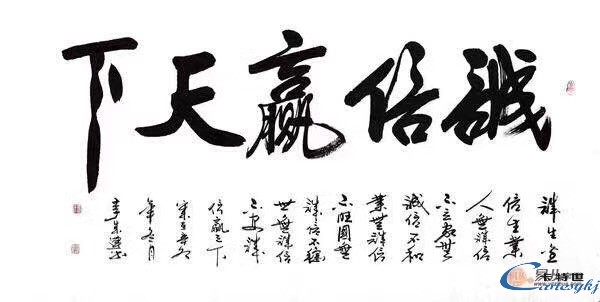 誠信贏天下
誠生金
信生業
人無誠信
不立家無
誠信不和
業無誠信
不旺國無
誠信不穩
世無誠信
不安誠
信贏天下
歲在辛卯
年冬月
卡特世